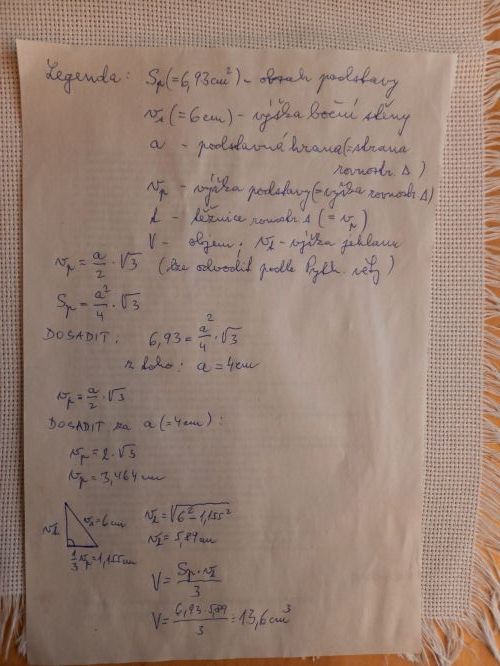 Legenda: Sp (=6,93cm²) - obsah podstavy
vs (=6cm) - výška boční stěny
a - podstavná hrana (=strana
rovnostr. Δ)
vp - výška podstavy (=výška rovnostr. Δ)
t - těžnice rovnostr. Δ (= vp)
V - objem; vt - výška jehlanu
vp = a/2 · √3 (lze odvodit podle Pyth. věty)
Sp = a²/4 · √3
DOSADIT: 6,93 = a²/4 · √3
z toho: a = 4cm
vp = a/2 · √3
DOSADIT za a (=4cm):
vp = 2 · √3
vp = 3,464 cm
vt vs = 6cm vt = √(6² - 1,155²)
1/3 vp = 1,155cm vt = 5,89cm
V = Sp · vt / 3
V = 6,93 · 5,89 / 3 = 13,6 cm³